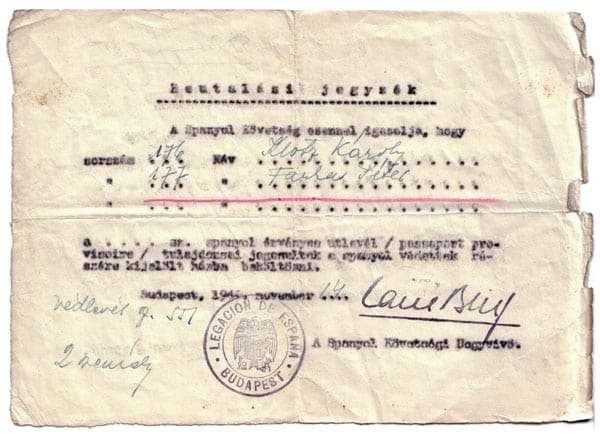 Beutalási jegyzék
A Spanyol Követség ezennel igazolja, hogy
sorszám 176 Név Klotz Károly
" 177 " Farkas
" . . . . " . . . . . . . . . . . . . . .
a . . . . . sz. spanyol érvényes utlevél / passaport pro-
visoire / tulajdonsai jogosultak a spanyol védettek ré-
szére kijelölt házba beköltözni.
Budapest, 1944. november 14.
védlevél
2 személy
LEGACION DE ESPAÑA
BUDAPEST
A Spanyol Követségi Ügyvivő.